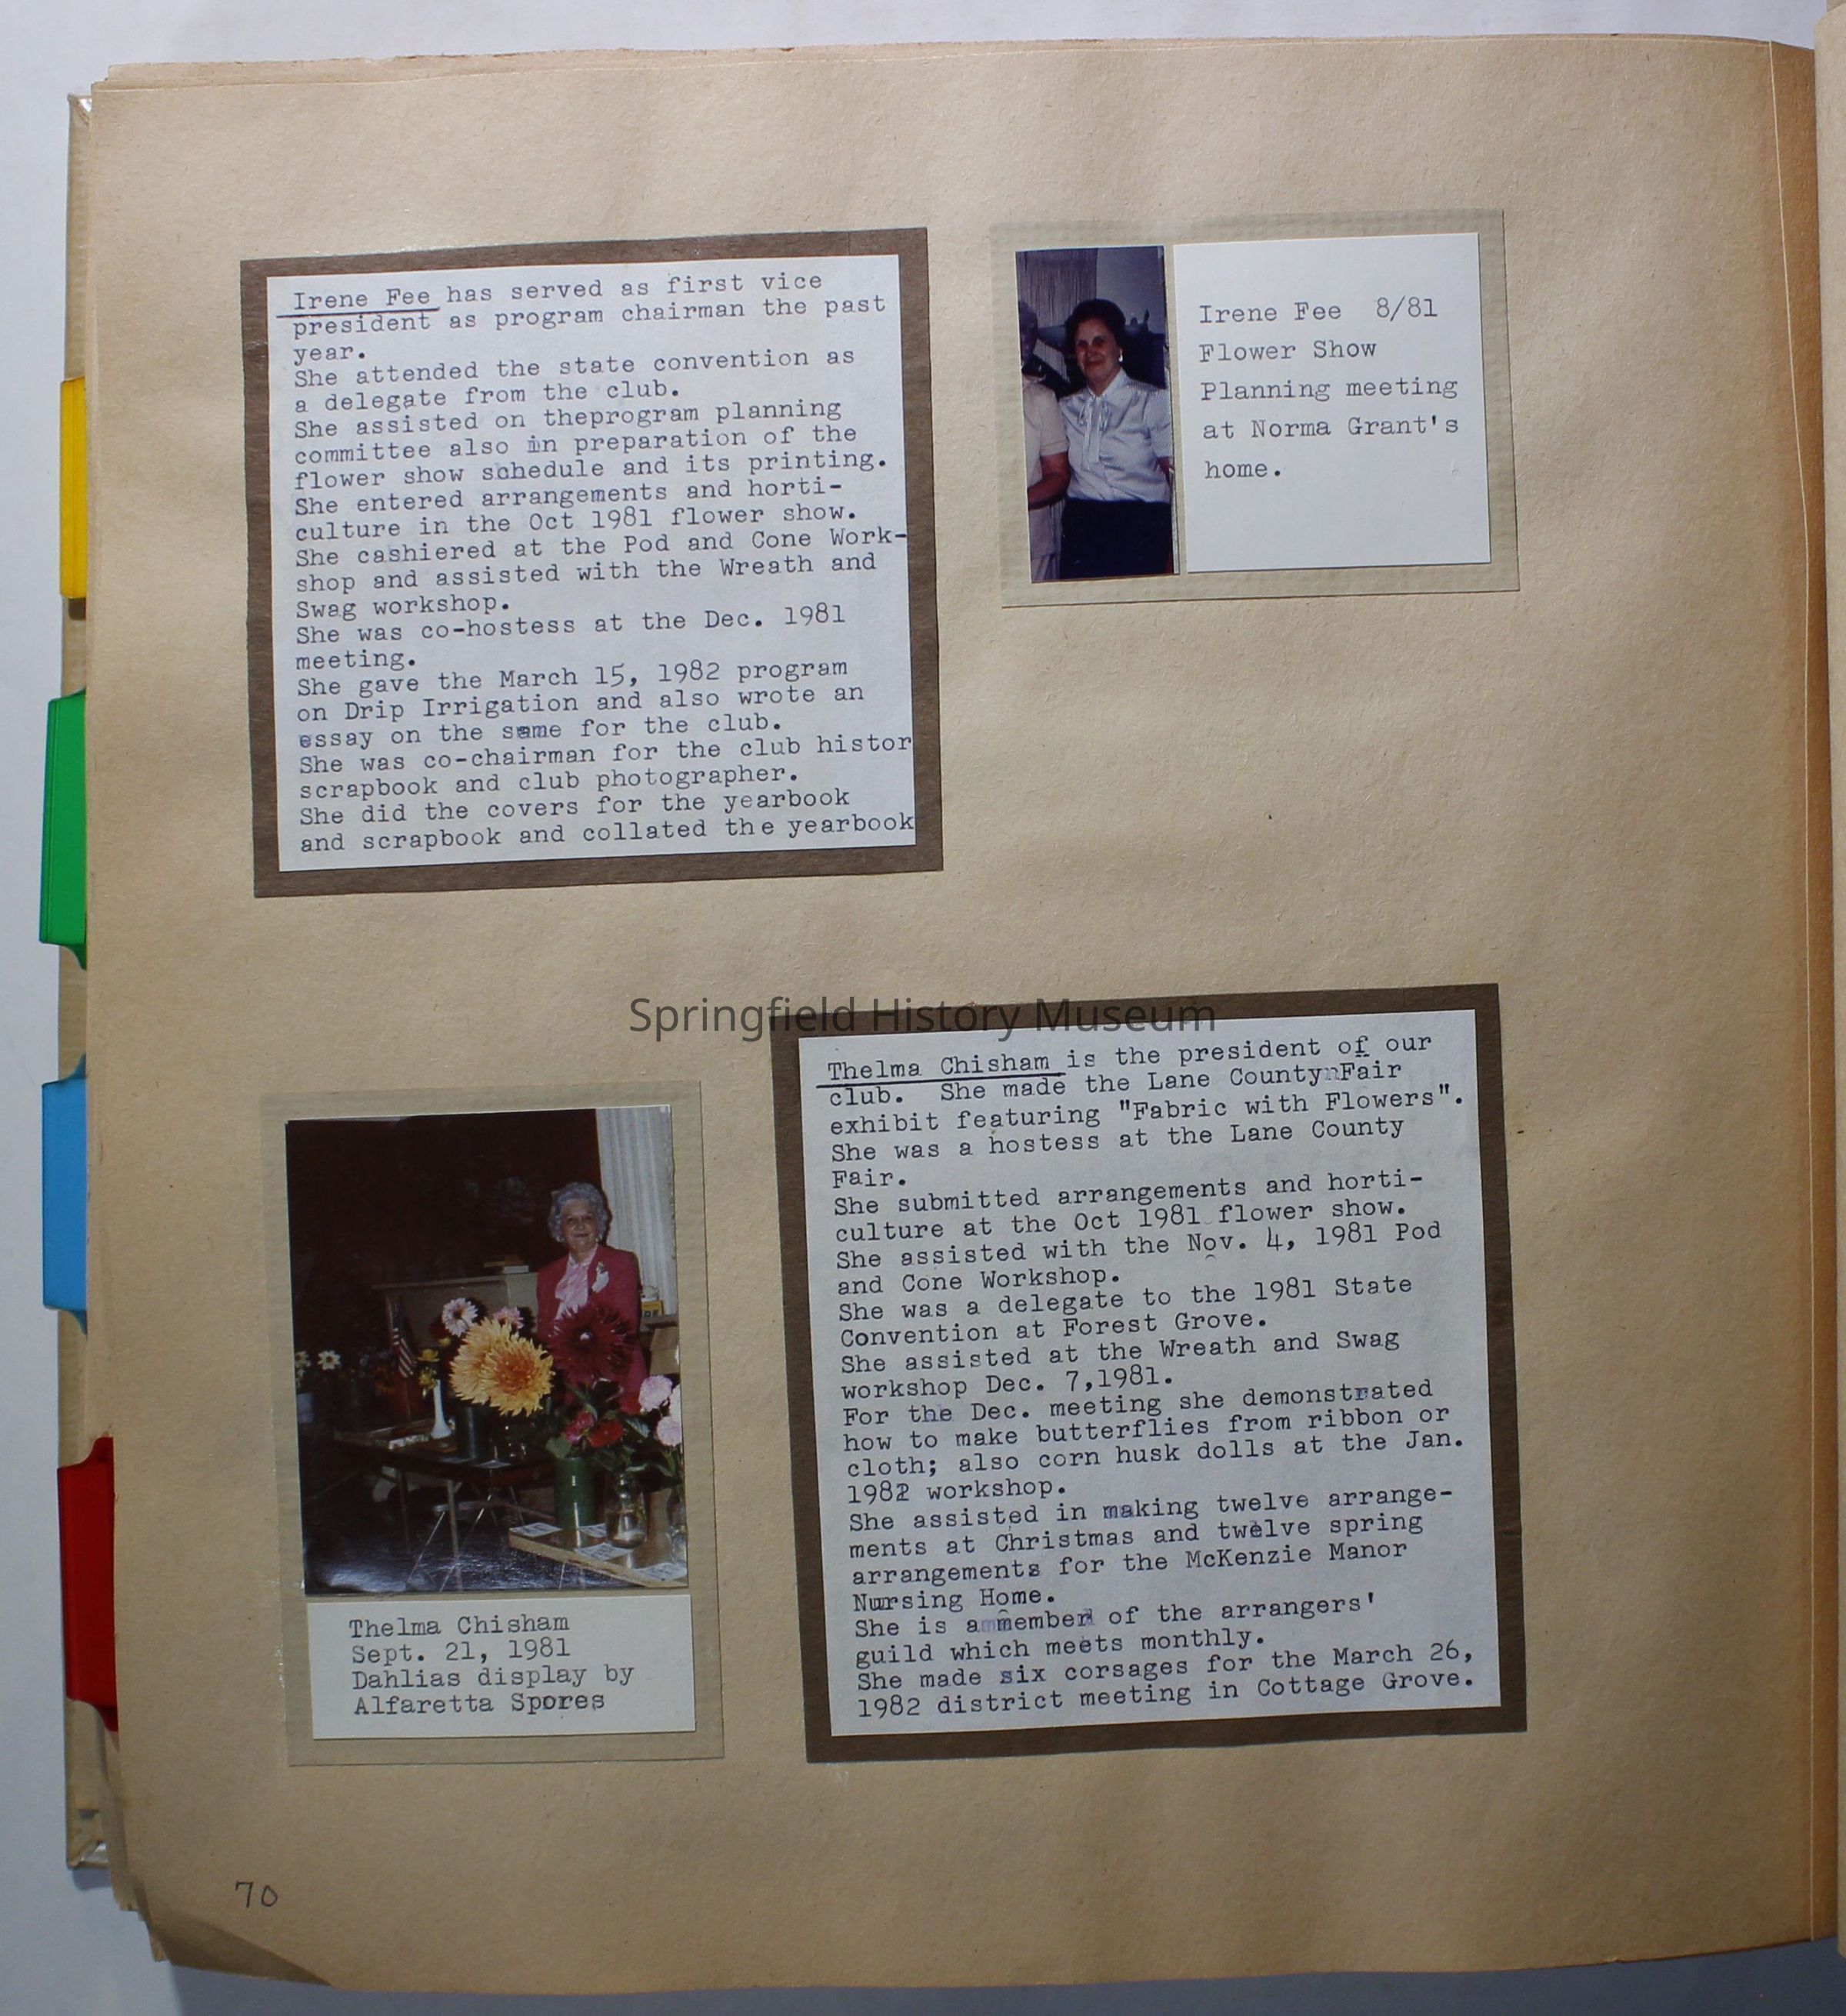 Irene Fee has served as first vice
president as program chairman the past
year.
She attended the state convention as
a delegate from the club.
She assisted on theprogram planning
committee also in preparation of the
flower show schedule and its printing.
She entered arrangements and horti-
culture in the Oct 1981 flower show.
She cashiered at the Pod and Cone Work-
shop and assisted with the Wreath and
Swag workshop.
She was co-hostess at the Dec. 1981
meeting.
She gave the March 15, 1982 program
on Drip Irrigation and also wrote an
essay on the same for the club.
She was co-chairman for the club histor
scrapbook and club photographer.
She did the covers for the yearbook
and scrapbook and collated the yearbook
Irene Fee 8/81
Flower Show
Planning meeting
at Norma Grant's
home.
Springfield History Museum
Thelma Chisham
Sept. 21, 1981
Dahlias display by
Alfaretta Spores
Thelma Chisham is the president of our
club. She made the Lane County Fair
exhibit featuring "Fabric with Flowers".
She was a hostess at the Lane County
Fair.
She submitted arrangements and horti-
culture at the Oct 1981 flower show.
She assisted with the Nov. 4, 1981 Pod
and Cone Workshop.
She was a delegate to the 1981 State
Convention at Forest Grove.
She assisted at the Wreath and Swag
workshop Dec. 7,1981.
For the Dec. meeting she demonstrated
how to make butterflies from ribbon or
cloth; also corn husk dolls at the Jan.
1982 workshop.
She assisted in making twelve arrange-
ments at Christmas and twelve spring
arrangements for the McKenzie Manor
Nursing Home.
She is a member of the arrangers'
guild which meets monthly.
She made six corsages for the March 26,
1982 district meeting in Cottage Grove.
70